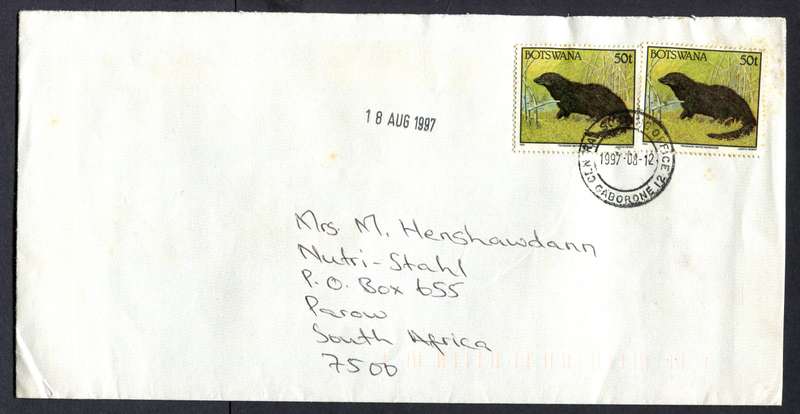 BOTSWANA 50t
BOTSWANA 50t
18 AUG 1997
1997-08-12
GABORONE
Mrs. M. Henshawdann
Nutri-Stahl
P.O. Box 655
Parow
South Africa
7500